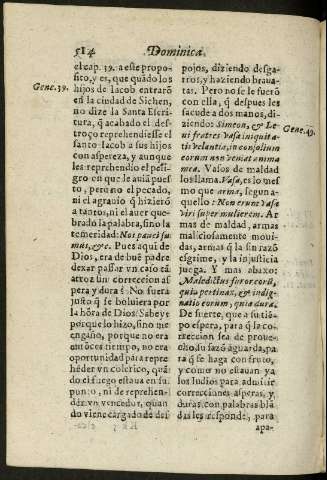 514 Dominica
el cap. 39. a este propo-
sito, y es, que quãdo los
hijos de Iacob entrarõ
en la ciudad de Sichen,
no dize la Santa Escri
tura, q̃ acabado el des-
troço reprehendiesse el
santo Iacob a sus hijos
con aspereza, y aunque
les reprehendio el peli-
gro en que le auia pues
to, pero no el pecado,
ni el agrauio q̃ hizierõ
a tantos, ni el auer que-
brado la palabra, sino la
temeridad: Nos pauci su
mus, &c. Pues aqui de
Dios, era de buẽ padre
dexar passar vn caso tã
atroz sin correccion as
pera y dura? No fuera
justo q̃ se boluiera por
la hõra de Dios? Sabeys
porque lo hizo, sino me
engaño, porque no era
entõces tiempo, no era
oportunidad para repre
hẽder vn colerico, quã
do el fuego estaua en su
punto, ni de reprehen-
der vn vencedor, quan
do viene cargado de des
Genes. 39.
pojos, diziendo desga-
rros, y haziendo braua-
tas. Pero no se le fuerõ
con ella, q̃ despues les
sacude a dos manos, di-
ziendo: Simeon, & Le
ui fratres vasa iniquita-
tis velantia, in consilium
eorum non veniat anima
mea. Vasos de maldad
los llama. Vasa, es lo mes
mo que arma, segun a-
quello: Non erunt vasa
viri super mulierem. Ar
mas de maldad, armas
maliciosamente moui-
das, armas q̃ la sin razõ
esgrime, y la injusticia
juega. Y mas abaxo:
Maledictus furor eorũ,
quia pertinax, & indig-
natio eorum, quia dura.
De suerte, que a su tiẽ-
po espera, para q̃ la co-
rreccion sea de proue-
cho, su sazõ aguarda, pa
ra q̃ se haga con fruto,
y como no estauan ya
los Iudios para admitir
correcciones asperas, y
duras, con palabras blã
das les responde, para
apa-
Genes. 49.